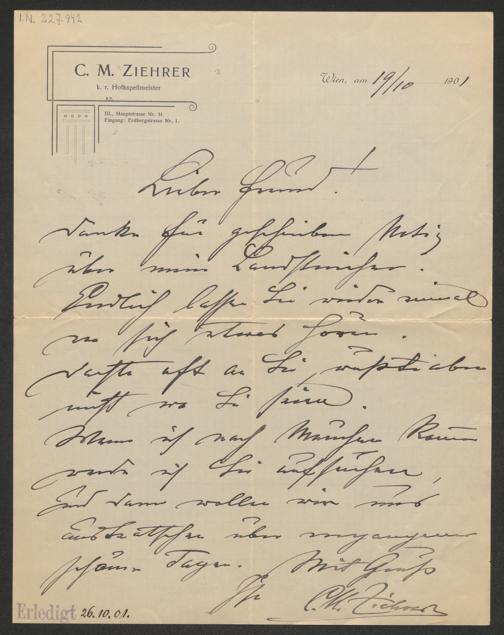 I.N. 227.942
C. M. ZIEHRER
k. k. Hofkapellmeister
III., Hauptstrasse Nr.
Eingang: Erdbergstrasse Nr. 1.
Wien, am 19/10 1901
Lieber Freund!
Danke für geschriebene Notiz
über meine Landstreicher.
Endlich lassen Sie wieder einmal
von sich etwas hören.
Dachte oft an Sie, wußte aber
nicht wo Sie seien.
Wenn ich nach München komme
werde ich Sie aufsuchen,
und dann wollen wir uns
austratschen über vergangene
schöne Tage. Mit Gruß
Ihr C. M. Ziehrer
Erledigt 26.10.01.